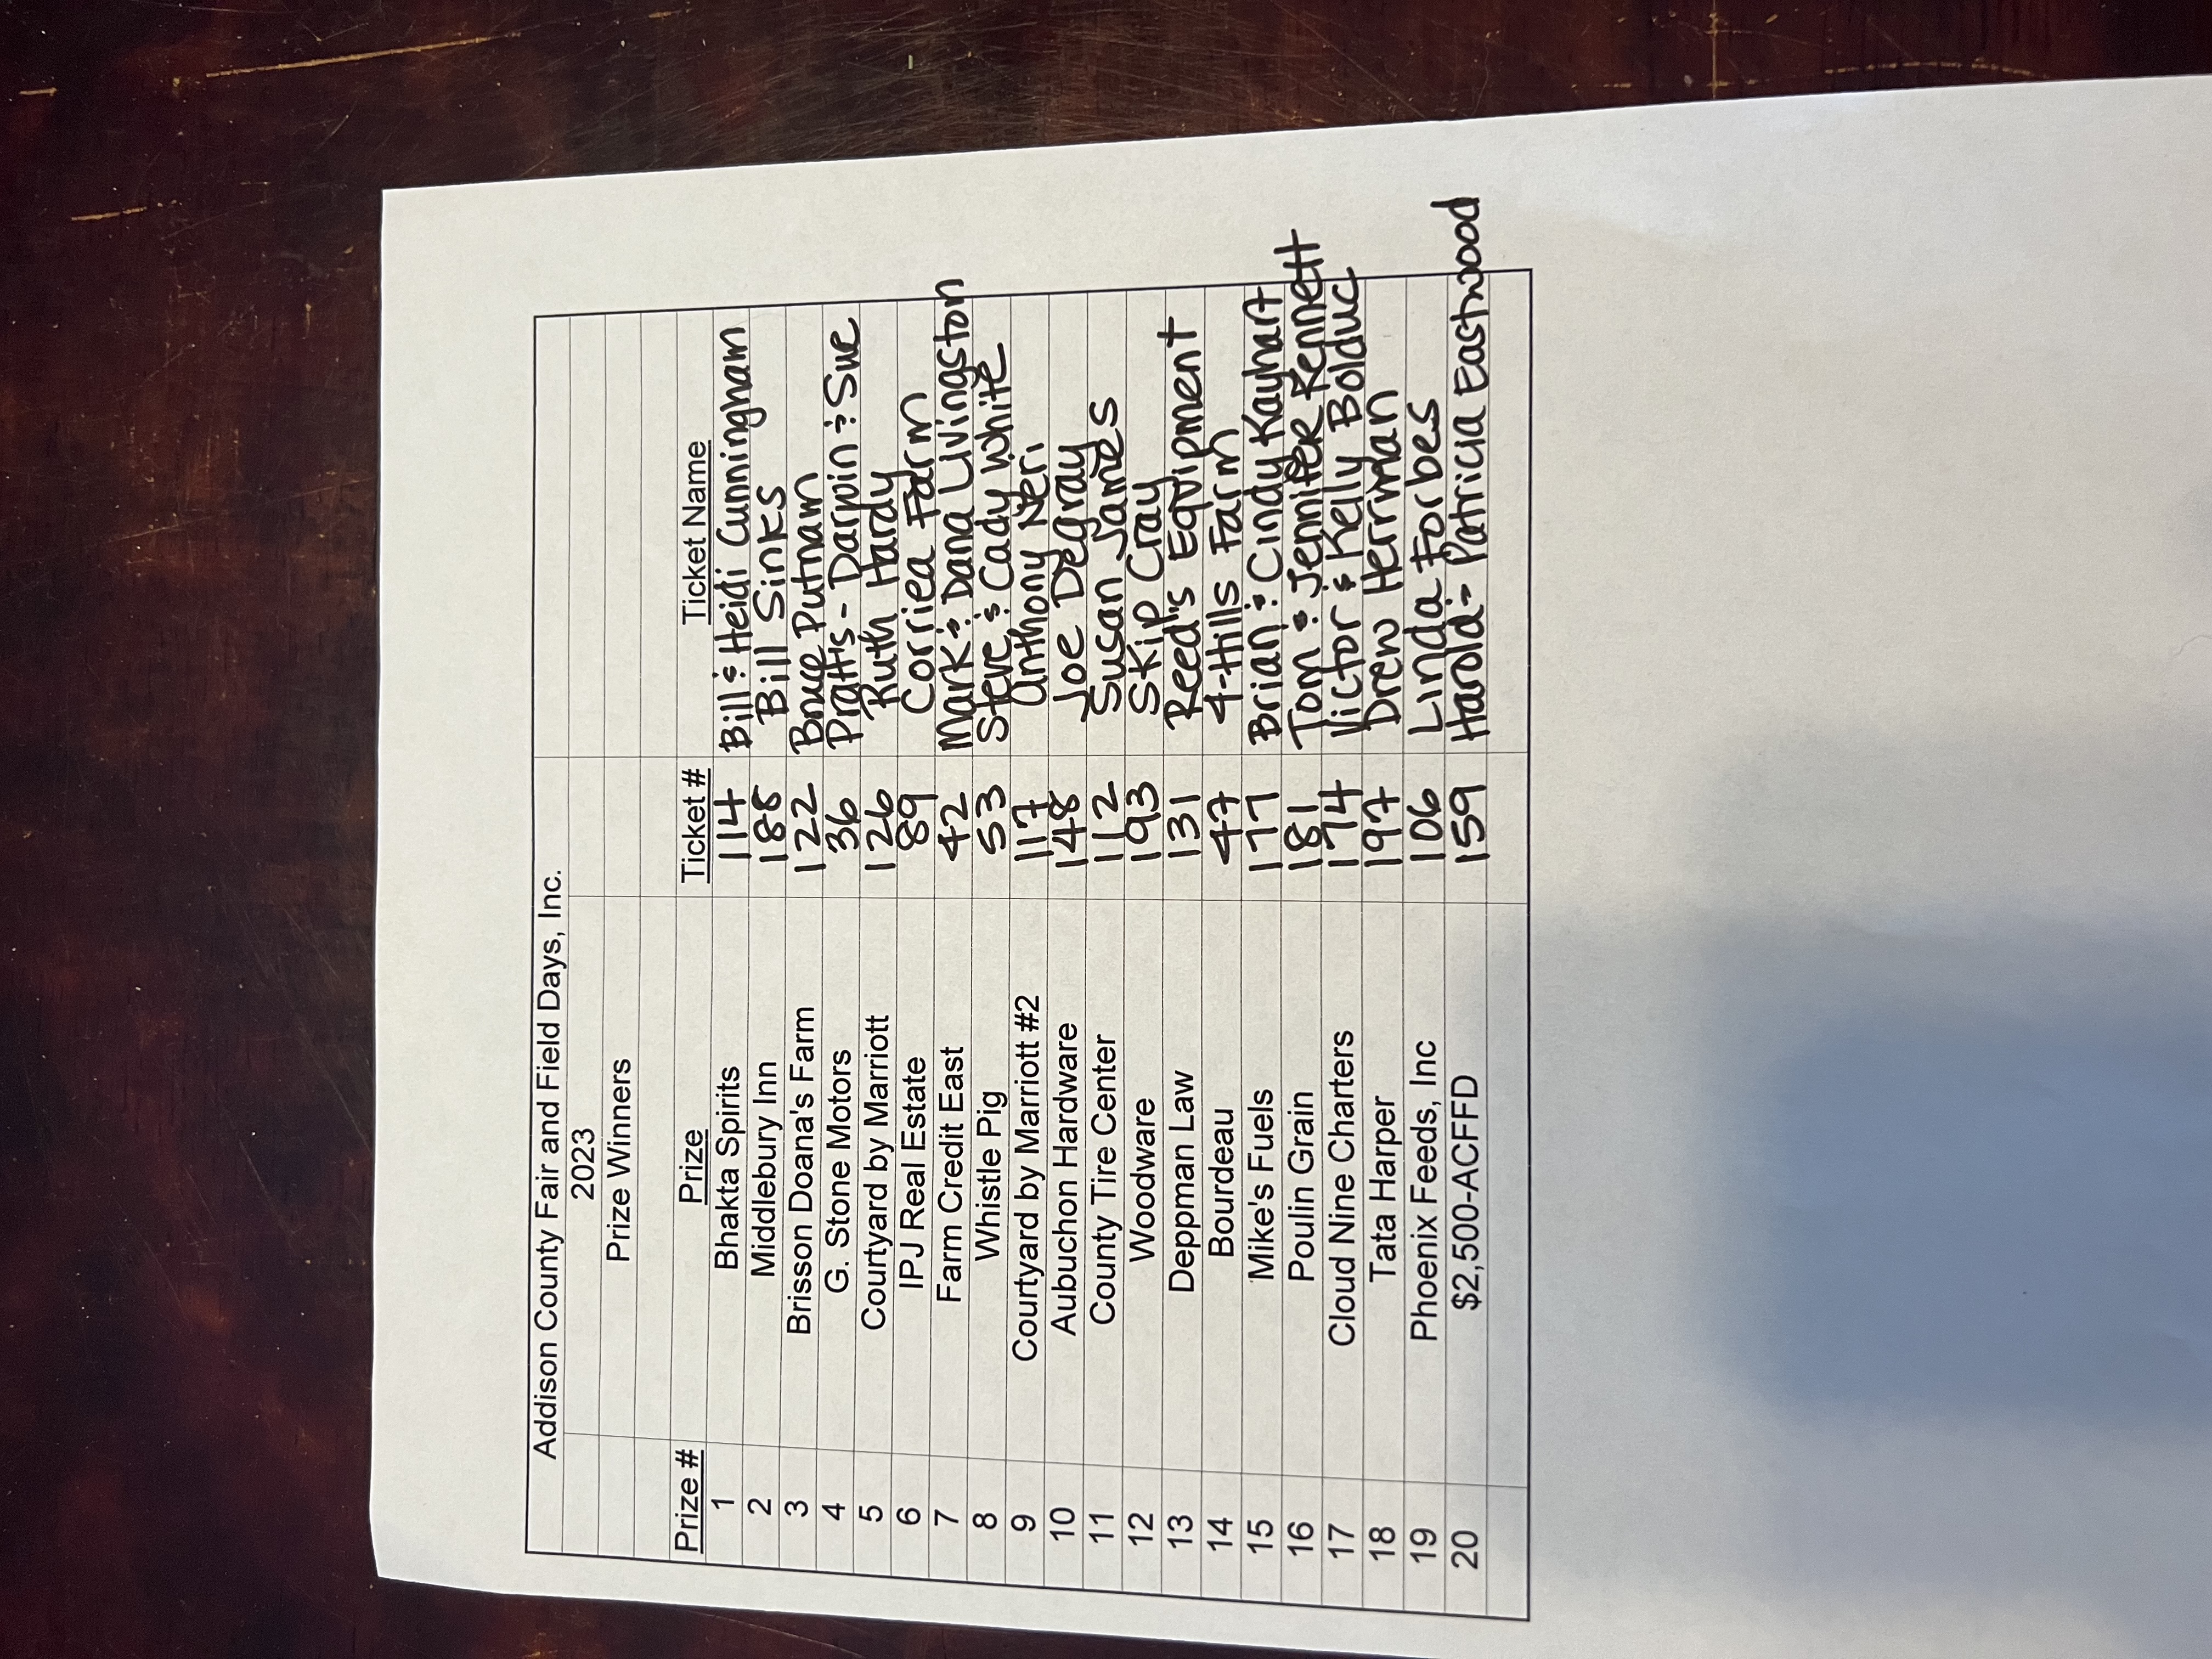 Addison County Fair and Field Days, Inc.
2023
Prize Winners
Prize # Prize Ticket # Ticket Name
1 Bhakta Spirits 114 Bill & Heidi Cunningham
2 Middlebury Inn 188 Bill Sinks
3 Brisson Doana's Farm 122 Bruce Putnam
4 G. Stone Motors 36 Pratt's - Darwin & Sue
5 Courtyard by Marriott 126 Ruth Hardy
6 IPJ Real Estate 89 Corriea Farm
7 Farm Credit East 42 Mark & Dana Livingston
8 Whistle Pig 53 Steve & Cady White
9 Courtyard by Marriott #2 117 Anthony Neri
10 Aubuchon Hardware 148 Joe Degray
11 County Tire Center 112 Susan James
12 Woodware 193 Skip Cray
13 Deppman Law 131 Reed's Equipment
14 Bourdeau 47 4-Hills Farm
15 Mike's Fuels 177 Brian & Cindy Kayhart
16 Poulin Grain 181 Tom & Jennifer Kennett
17 Cloud Nine Charters 174 Victor & Kelly Bolduc
18 Tata Harper 197 Drew Herrman
19 Phoenix Feeds, Inc 106 Linda Forbes
20 $2,500-ACFFD 159 Harold & Patricia Eastwood